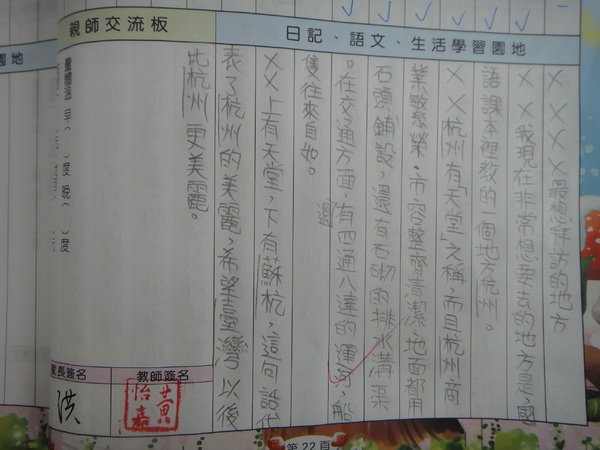 日記、語文、生活學習園地
××××最想拜訪的地方
××我現在非常想要去的地方是,國
語課本裡教的一個地方杭州。
××杭州有「天堂」之稱,而且杭州商
業繁榮,市容整齊清潔,地面都用
石頭鋪設,還有石砌的排水溝渠
。在交通方面,還有四通八達的運河,船
隻往來自如。
××上有天堂,下有蘇杭,這句話代
表了杭州的美麗,希望臺灣以後
比杭州更美麗。
親師交流板
量體溫 早( )度 晚( )度
家長簽名
洪
教師簽名
黃怡嘉
第22頁
園地